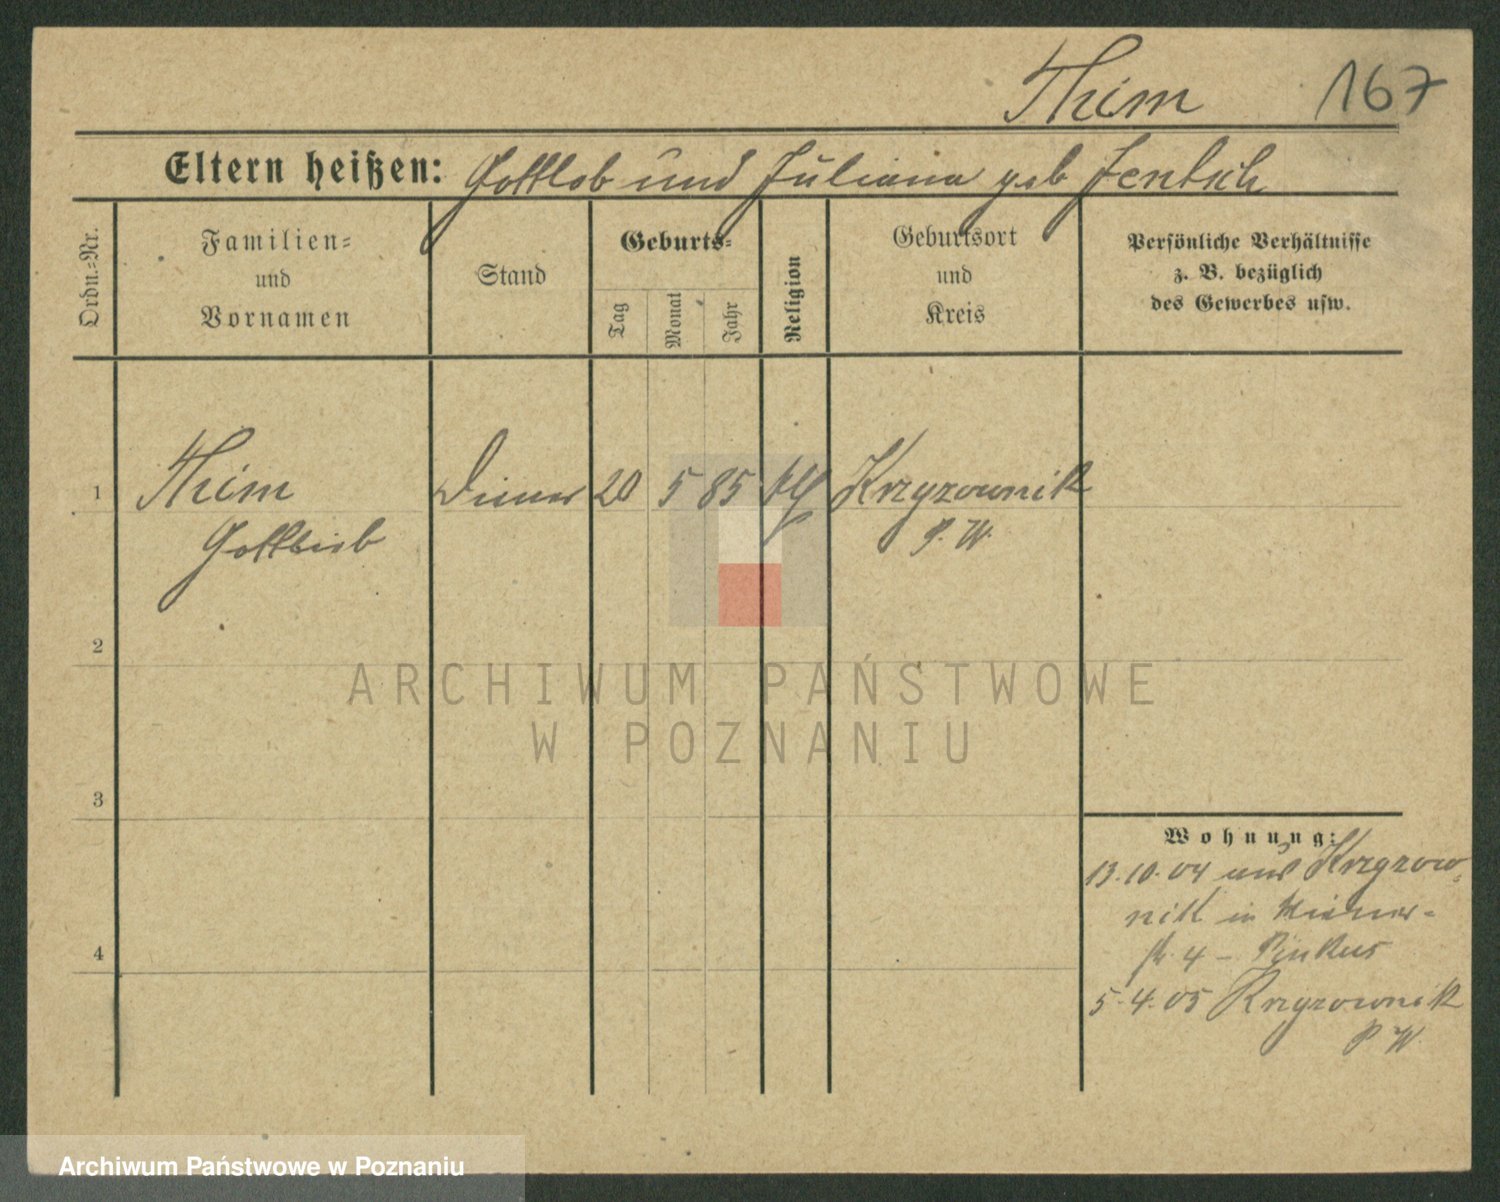 Thim 167
Eltern heißen: Gottlob und Juliana geb Jentsch
Ordn.=Nr.
Familien=
und
Vornamen
Stand
Geburts=
Tag
Monat
Jahr
Religion
Geburtsort
und
Kreis
Persönliche Verhältnisse
z. B. bezüglich
des Gewerbes usw.
1 Thim Diener 20 5 85 Krzyzownik
Gottlieb P. W.
2
ARCHIWUM PAŃSTWOWE
W POZNANIU
3
Wohnung:
13.10.04 aus Krzyzow=
nik in
str. 4 – Pinkus
4
5.4.05 Krzyzownik
P W.
Archiwum Państwowe w Poznaniu